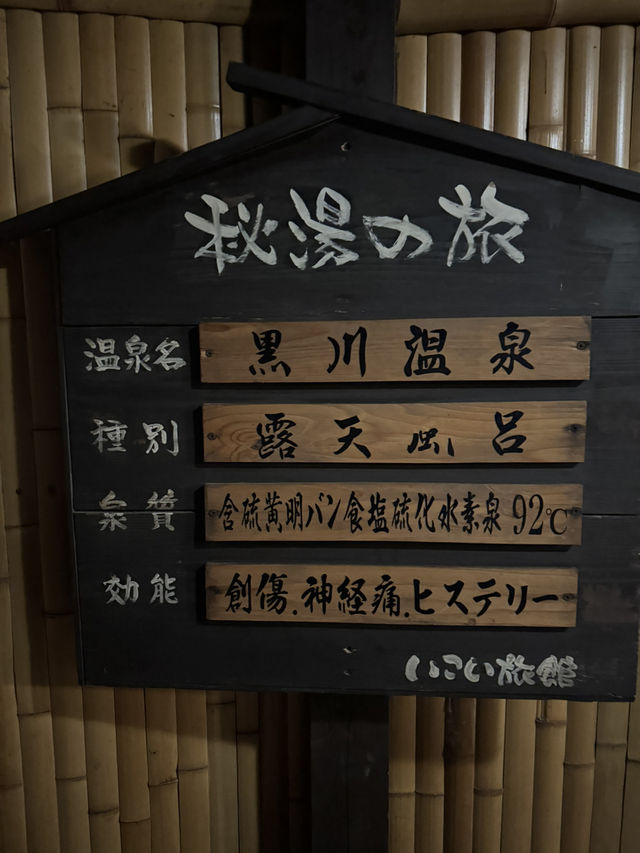 秘湯の旅
温泉名 黒川温泉
種別 露天風呂
泉質 含硫黄明バン食塩硫化水素泉 92℃
効能 創傷.神経痛.ヒステリー
いこい旅館